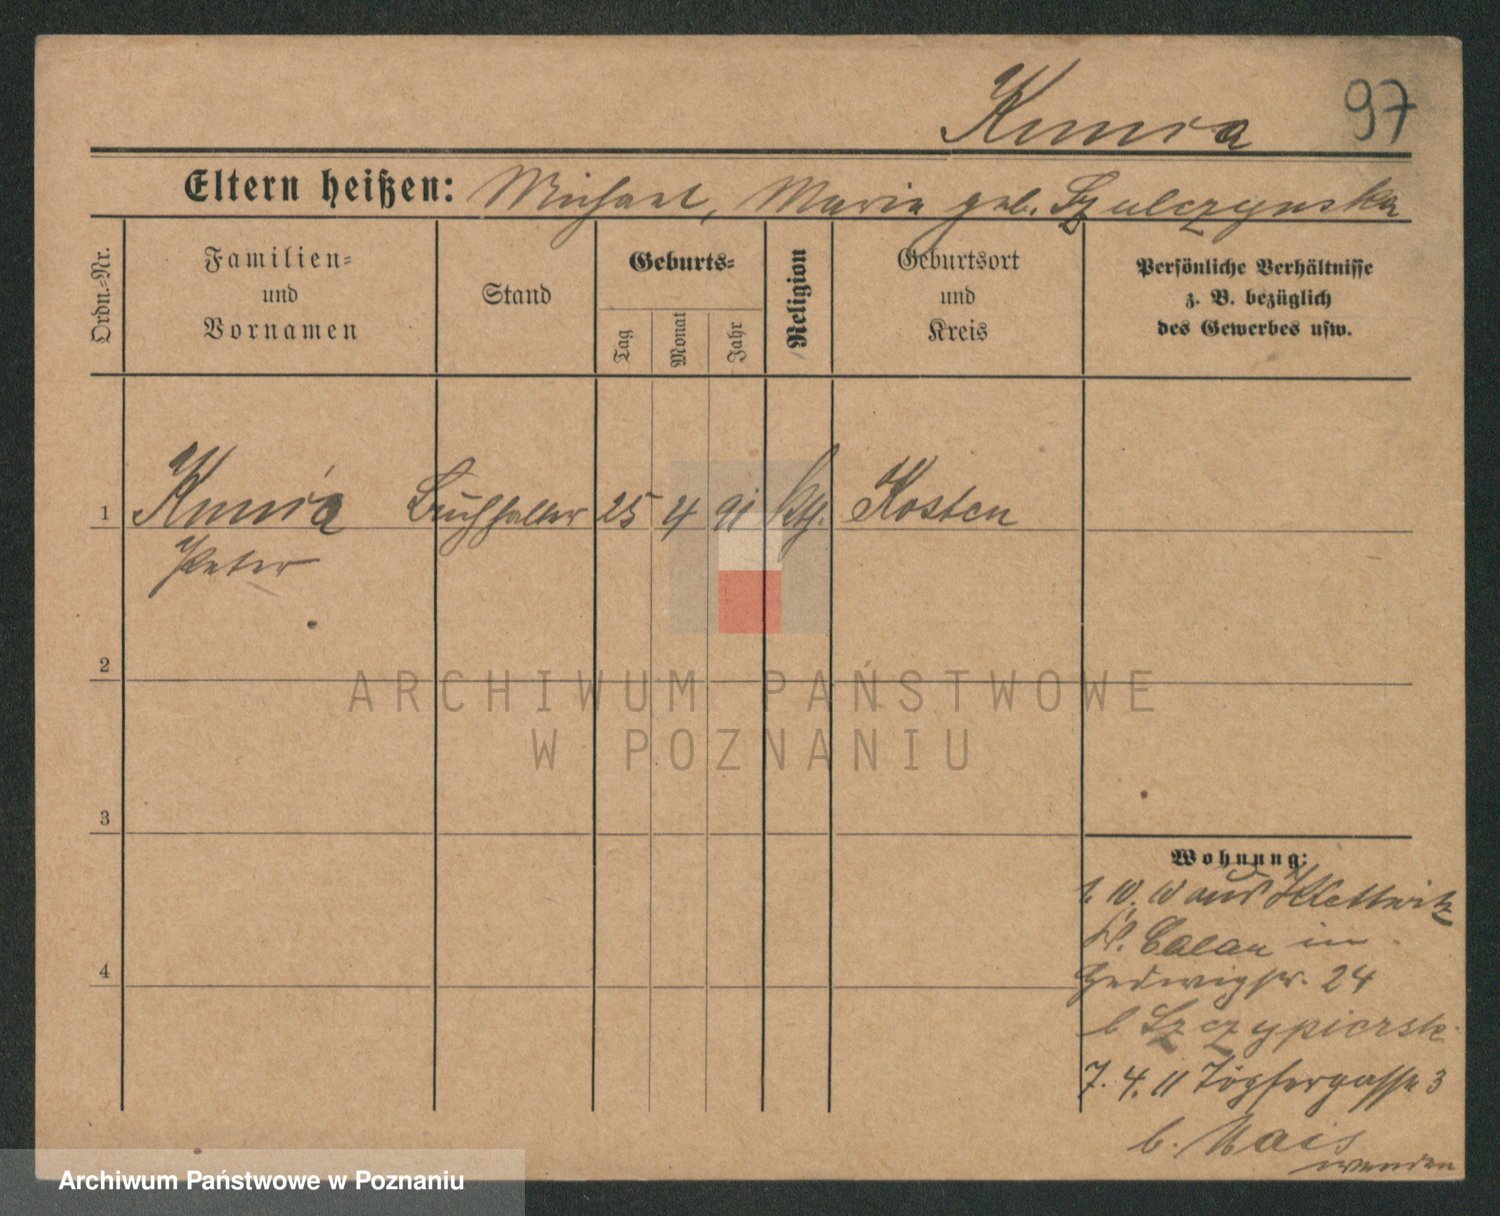 Kunia 97
Eltern heißen: Michael, Marie geb. Szulczynska
Ordn.-Nr.
Familien-
und
Vornamen
Stand
Geburts-
Tag
Monat
Jahr
Religion
Geburtsort
und
Kreis
Persönliche Verhältnisse
z. B. bezüglich
des Gewerbes usw.
1 Kunia Buchhalter 25 4 91 kth. Kosten
Peter
2
3
4
Wohnung:
aus Klettwitz
Kr. Calau in
Hedwigstr. 24
b Szczypiersk
7. 4. 11 Töpfergasse 3
b. Nais
wenden
ARCHIWUM PAŃSTWOWE
W POZNANIU
Archiwum Państwowe w Poznaniu